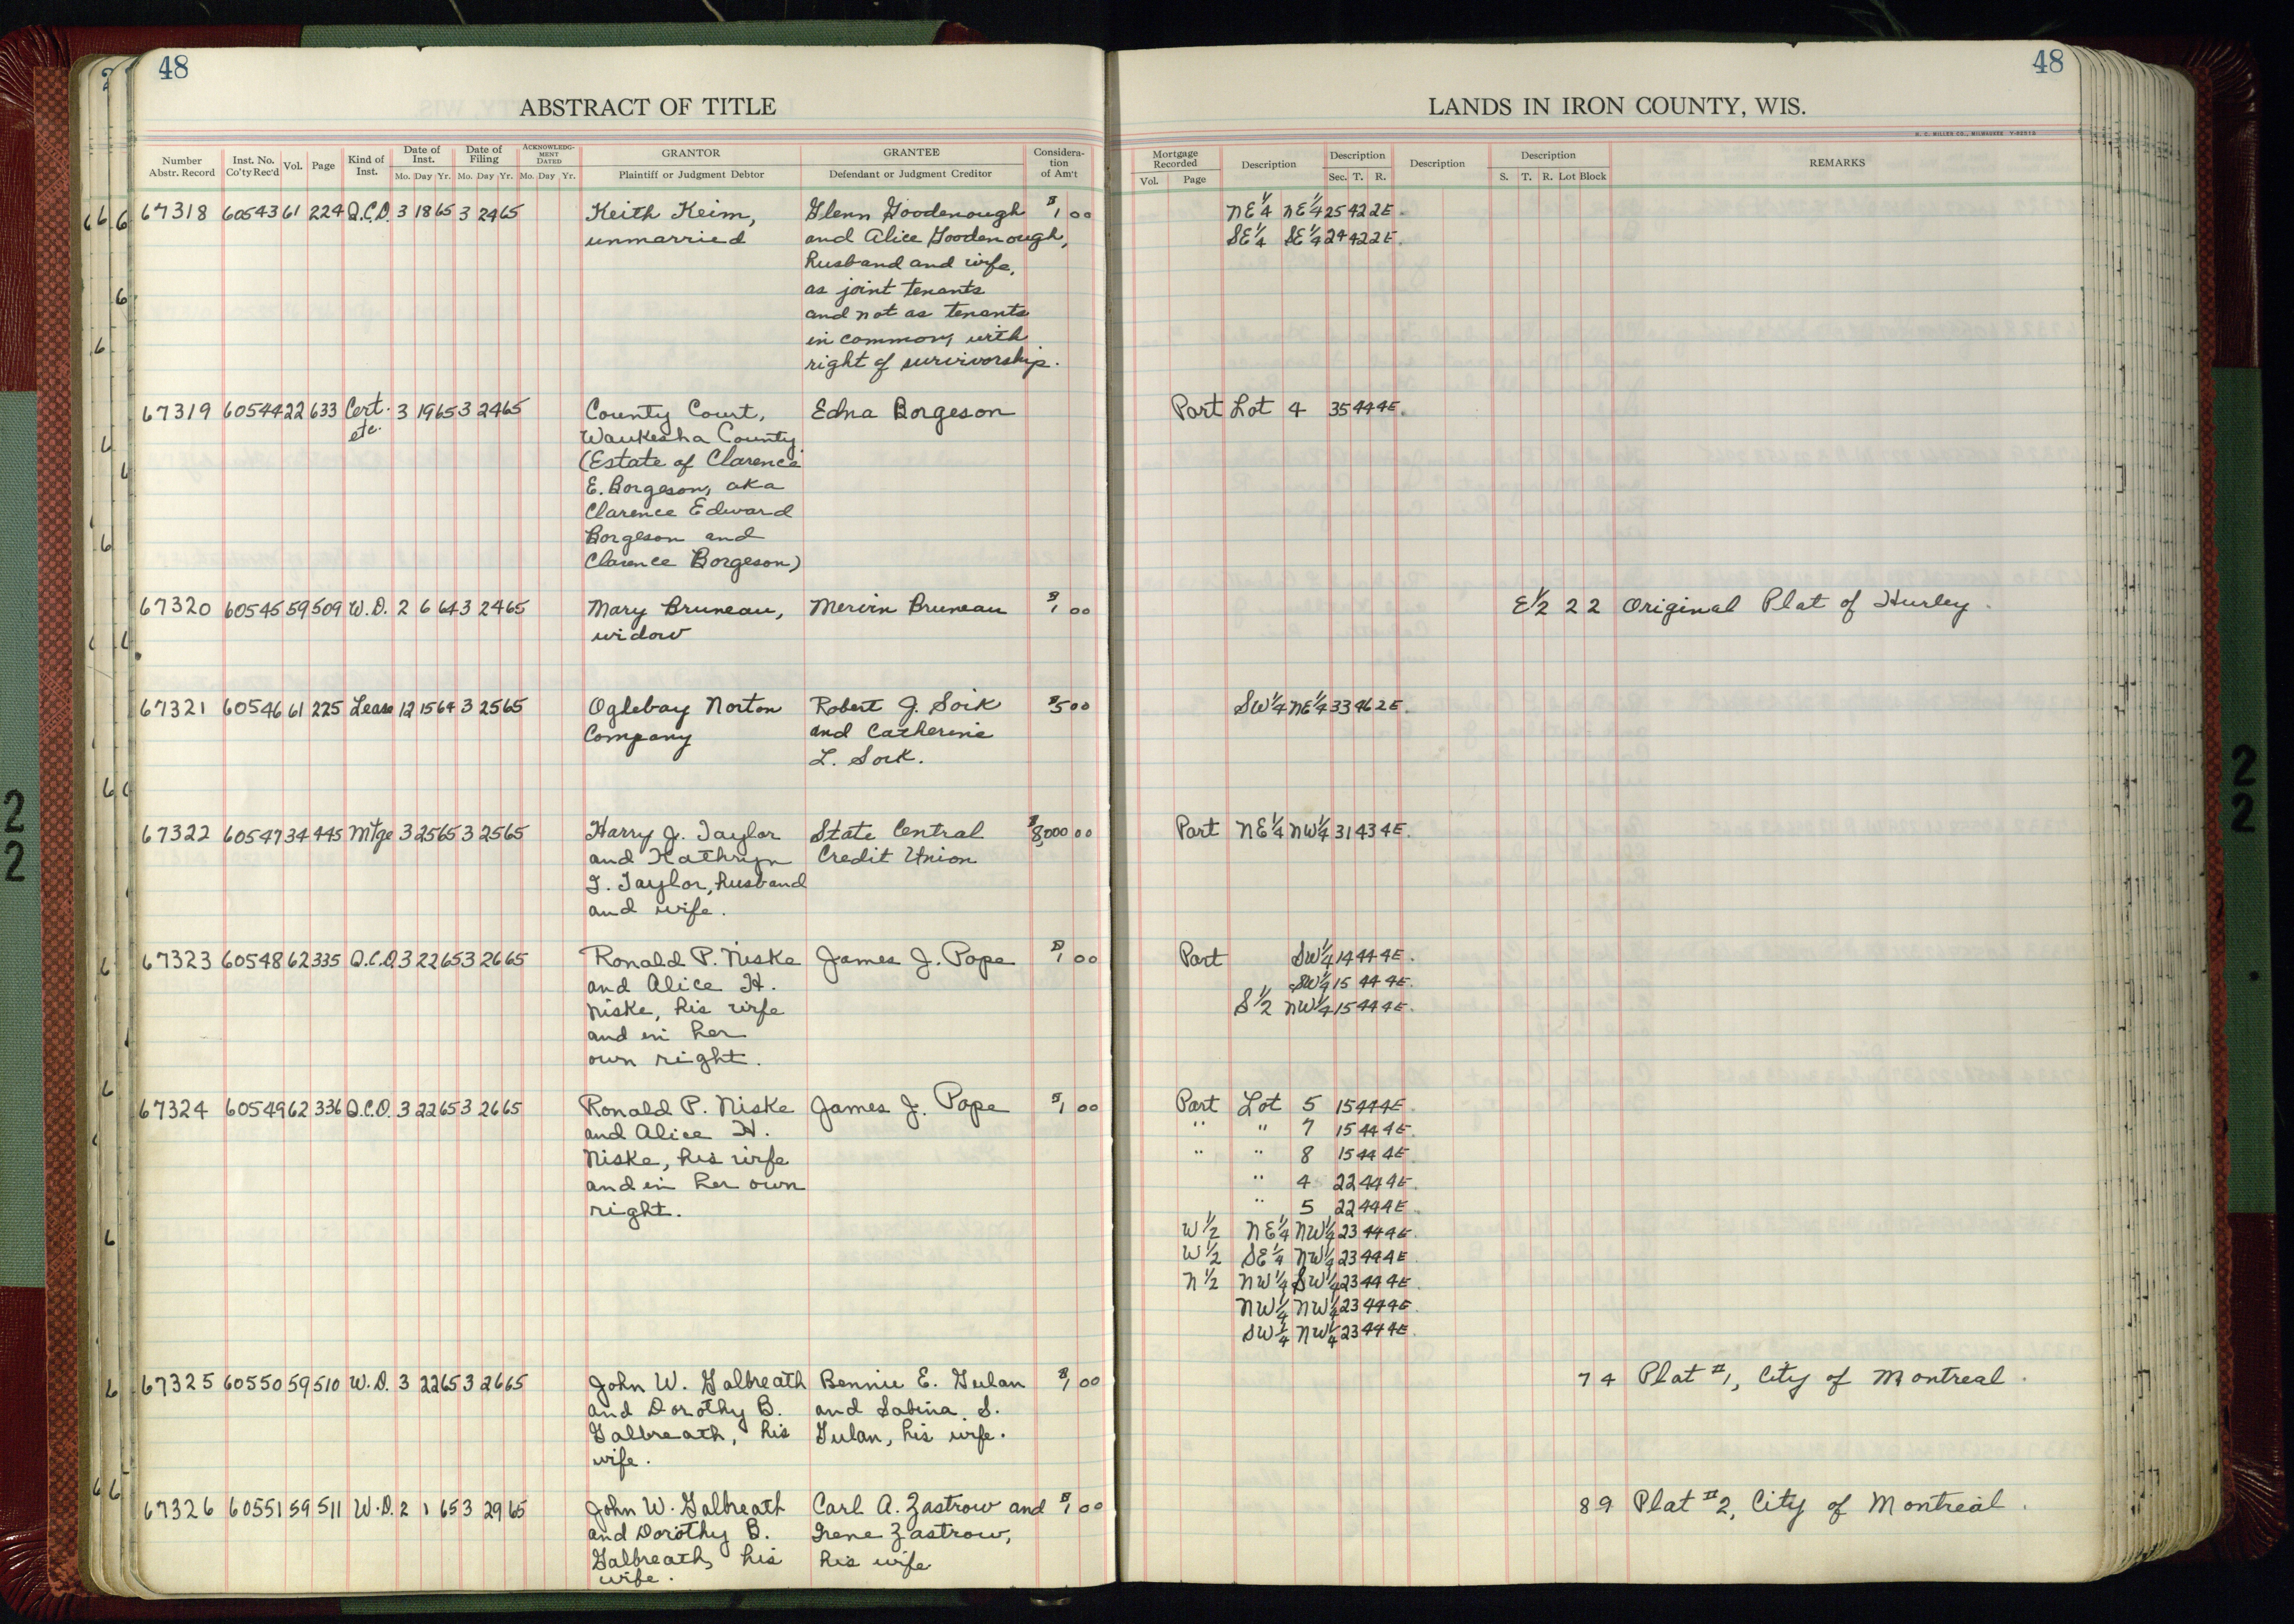 48
ABSTRACT OF TITLE
Number Abstr. Record | Inst. No. Co'ty Rec'd | Vol. | Page | Kind of Inst. | Date of Inst. Mo. Day Yr. | Date of Filing Mo. Day Yr. | ACKNOWLEDG-MENT DATED Mo. Day Yr. | GRANTOR Plaintiff or Judgment Debtor | GRANTEE Defendant or Judgment Creditor | Considera-tion of Am't
67318 60543 61 224 Q.C.D. 3 18 65 3 24 65 Keith Keim, Glenn Goodenough $1 00
unmarried and Alice Goodenough,
husband and wife,
as joint tenants
and not as tenants
in common, with
right of survivorship.
67319 60544 22 633 Cert. 3 19 65 3 24 65 County Court, Edna Borgeson
etc. Waukesha County
(Estate of Clarence
E. Borgeson, aka
Clarence Edward
Borgeson and
Clarence Borgeson)
67320 60545 59 509 W.D. 2 6 64 3 24 65 Mary Bruneau, Mervin Bruneau $1 00
widow
67321 60546 61 225 Lease 12 15 64 3 25 65 Oglebay Norton Robert J. Soik $5 00
Company and Catherine
L. Soik.
67322 60547 34 445 Mtge 3 25 65 3 25 65 Harry J. Taylor State Central $8,000 00
and Kathryn Credit Union
I. Taylor, husband
and wife.
67323 60548 62 335 Q.C.D. 3 22 65 3 26 65 Ronald P. Niske James J. Pope $1 00
and Alice H.
Niske, his wife
and in her
own right.
67324 60549 62 336 Q.C.D. 3 22 65 3 26 65 Ronald P. Niske James J. Pope $1 00
and Alice H.
Niske, his wife
and in her own
right.
67325 60550 59 510 W.D. 3 22 65 3 26 65 John W. Galbreath Bennie E. Gulan $1 00
and Dorothy B. and Sabina S.
Galbreath, his Gulan, his wife.
wife.
67326 60551 59 511 W.D. 2 1 65 3 29 65 John W. Galbreath Carl A. Zastrow and $1 00
and Dorothy B. Irene Zastrow,
Galbreath, his his wife
wife.
48
LANDS IN IRON COUNTY, WIS.
H. C. MILLER CO., MILWAUKEE
Mortgage Recorded Vol. Page | Description | Description Sec. T. R. | Description | Description S. T. R. Lot Block | REMARKS
NE 1/4 NE 1/4 25 42 2E.
SE 1/4 SE 1/4 24 42 2E.
Part Lot 4 35 44 4E.
E 1/2 2 2 Original Plat of Hurley.
SW 1/4 NE 1/4 33 46 2E.
Part NE 1/4 NW 1/4 31 43 4E.
Part SW 1/4 14 44 4E.
SW 1/4 15 44 4E.
S 1/2 NW 1/4 15 44 4E.
Part Lot 5 15 44 4E.
" " 7 15 44 4E.
" " 8 15 44 4E.
" 4 22 44 4E.
" 5 22 44 4E.
W 1/2 NE 1/4 NW 1/4 23 44 4E.
W 1/2 SE 1/4 NW 1/4 23 44 4E.
N 1/2 NW 1/4 SW 1/4 23 44 4E.
NW 1/4 NW 1/4 23 44 4E.
SW 1/4 NW 1/4 23 44 4E.
7 4 Plat #1, City of Montreal.
8 9 Plat #2, City of Montreal.
22
22